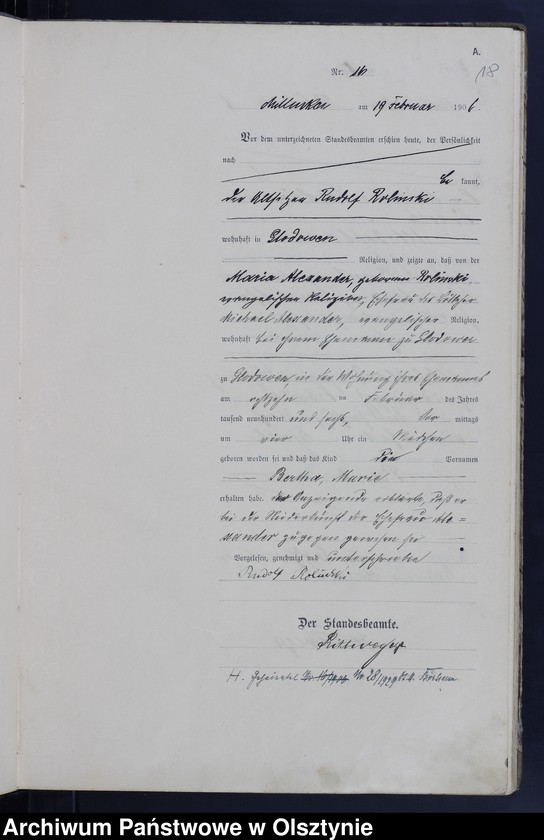 A.
18
Nr. 16
am 19 Februar 1906.
Vor dem unterzeichneten Standesbeamten erschien heute, der Persönlichkeit
nach
be kannt,
der Altsitzer Rudolf Rolinski
wohnhaft in Glodowen
Religion, und zeigte an, daß von der
Maria Alexander, geborenen Rolinski,
evangelischen Religion, Ehefrau des
Michael Alexander, evangelischer Religion,
wohnhaft bei ihrem Ehemanne zu Glodowen
zu Glodowen in der Wohnung ihres Ehemannes
am achtzehn ten Februar des Jahres
tausend neunhundert und sechs, Vor mittags
um vier Uhr ein Mädchen
geboren worden sei und daß das Kind die Vornamen
Bertha, Marie
erhalten habe. Der Anzeigende erklärte, daß er
bei der Niederkunft der Ehefrau Ale=
xander zugegen gewesen sei
Vorgelesen, genehmigt und unterschrieben
Rudolf Rolinski
Der Standesbeamte.
H. Geheiratet Nr 28/1929
Archiwum Państwowe w Olsztynie